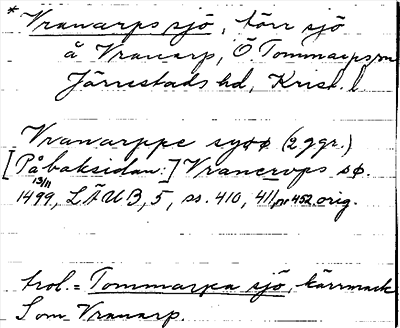 * Vranarps sjö, torr sjö
å Vranarp, Ö. Tommarps sn
Järrestads hd, Krist. l.
Vranarppe syøø (2 ggr.)
[På baksidan:] Vranerops sø.
13/11
1499, LÄUB, 5, ss. 410, 411, nr 452, orig.
trol. = Tommarpa sjö, kärrmark
S om Vranarp.